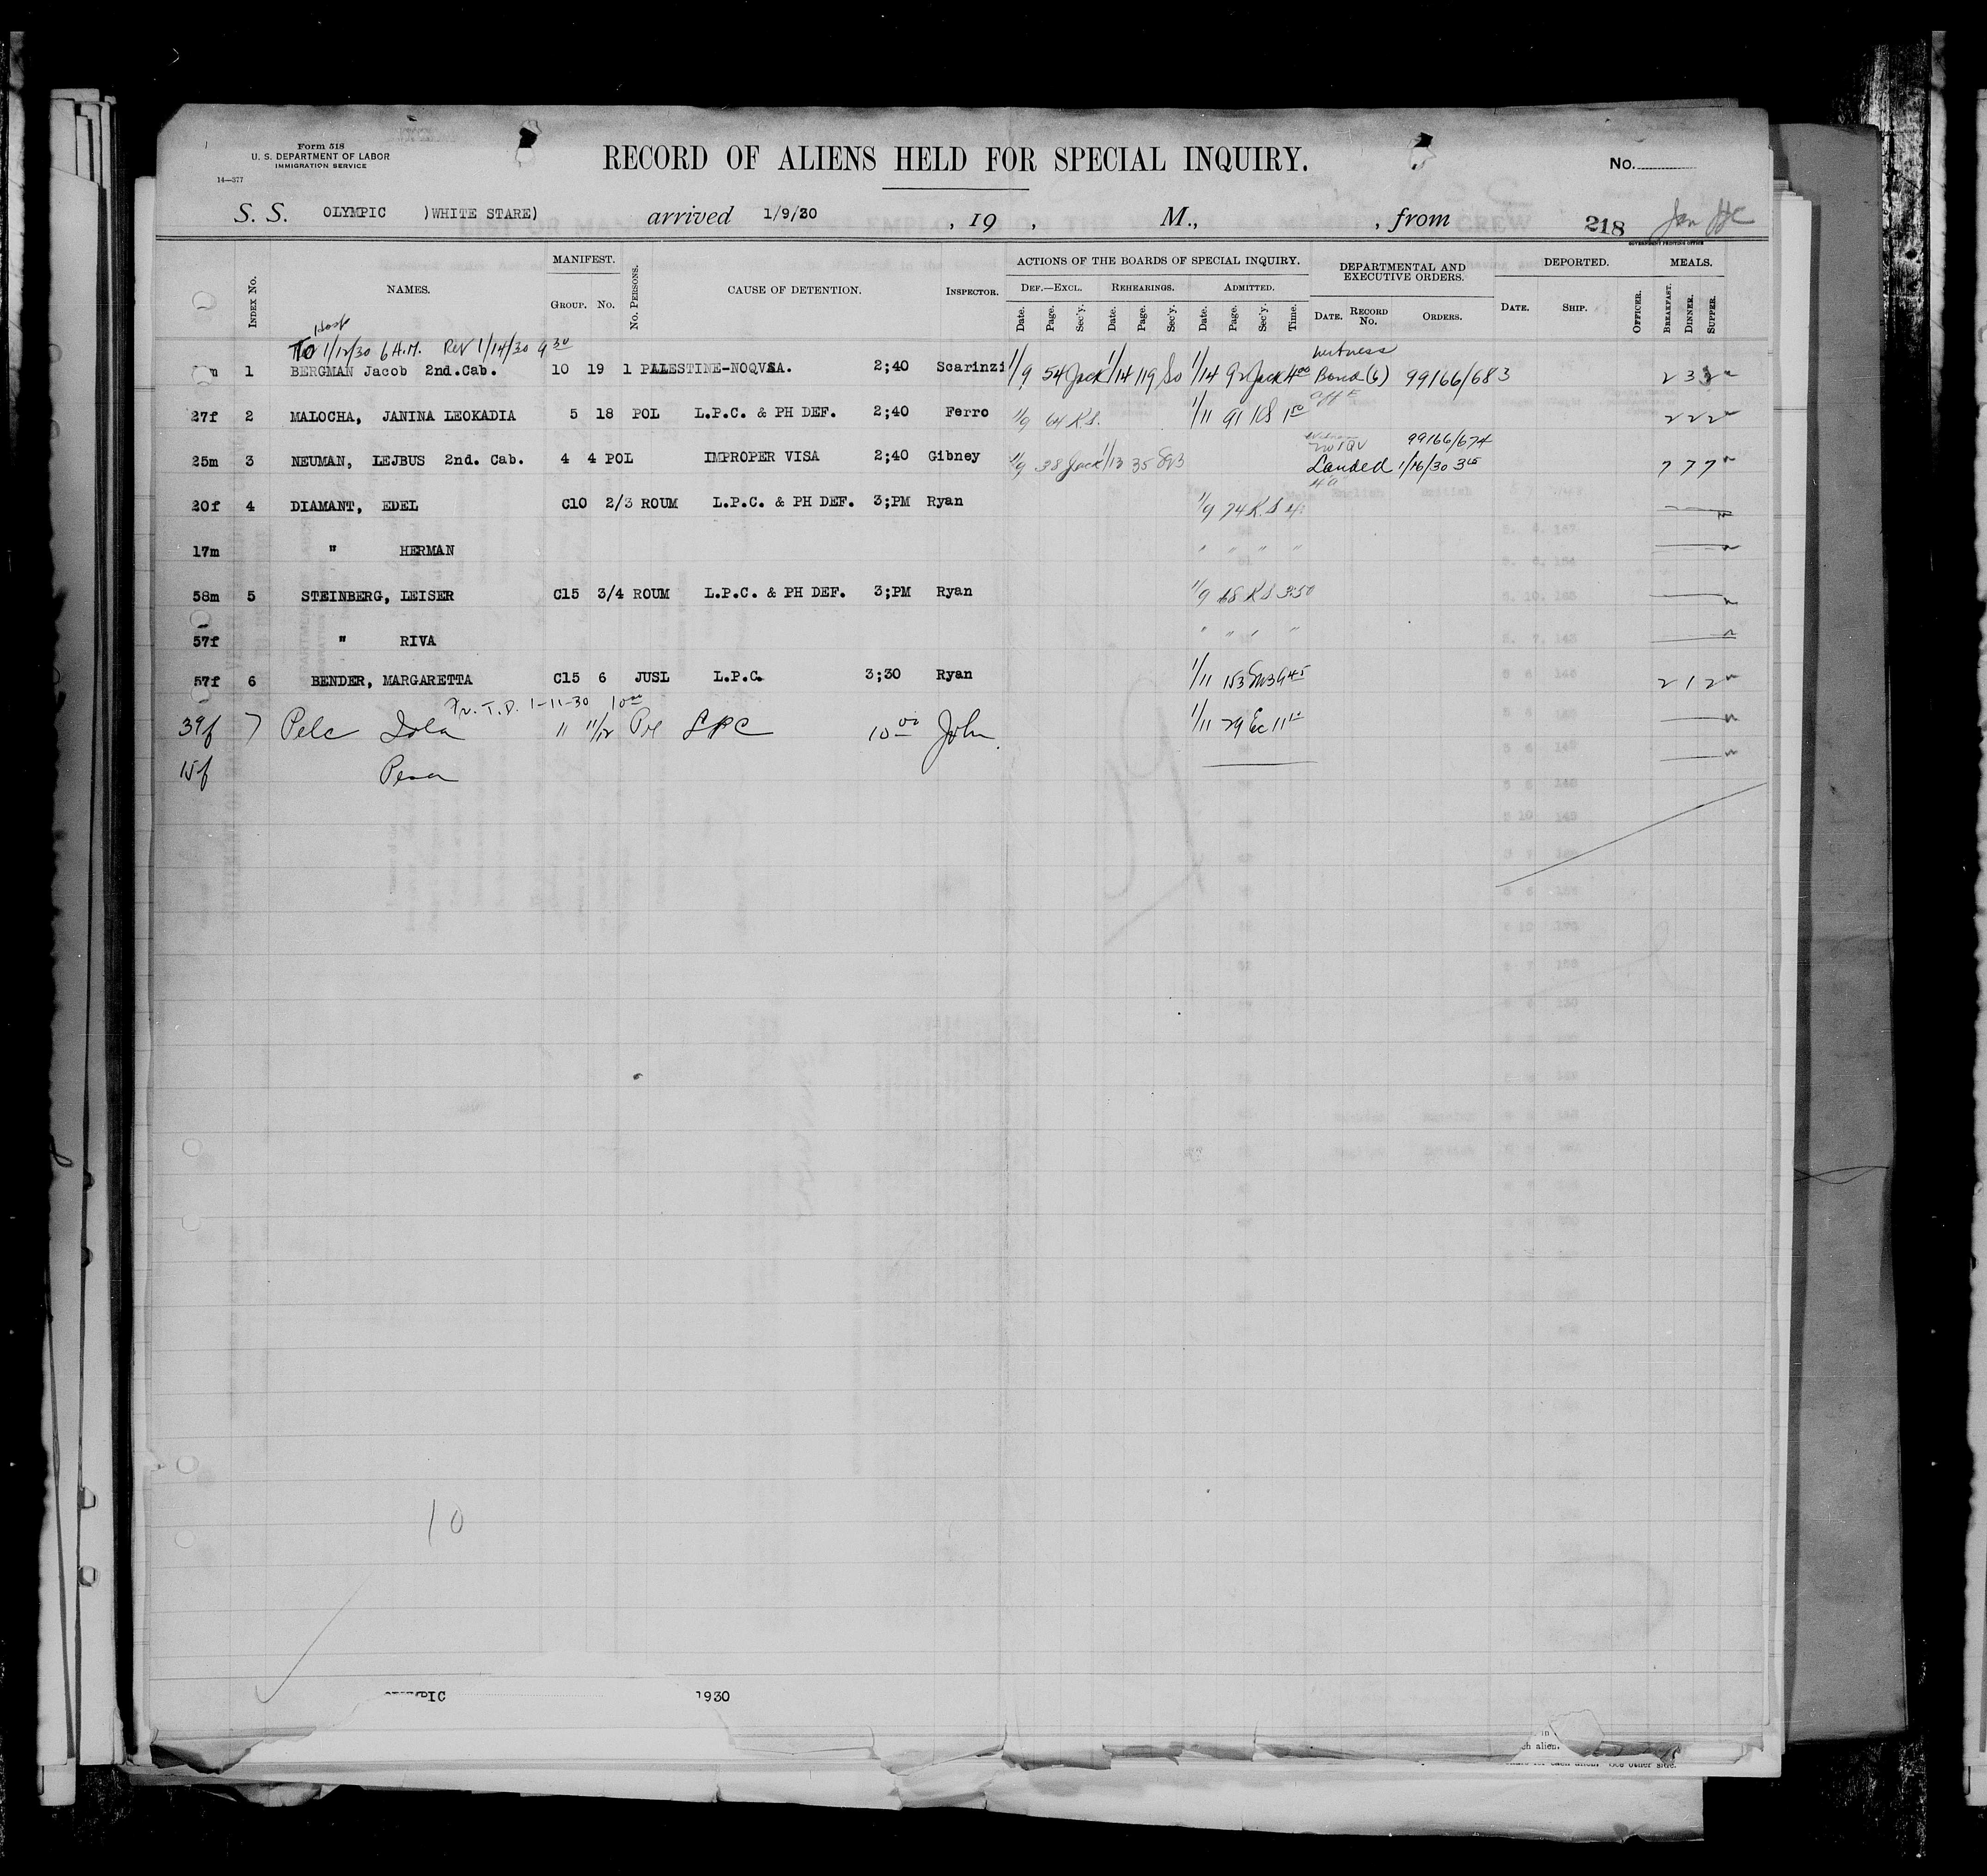 Form 518
U. S. DEPARTMENT OF LABOR
IMMIGRATION SERVICE
14—377
RECORD OF ALIENS HELD FOR SPECIAL INQUIRY.
No.
S. S. OLYMPIC )WHITE STARE) arrived 1/9/30 , 19 , M., , from 218
GOVERNMENT PRINTING OFFICE
INDEX No. NAMES. MANIFEST. GROUP. No. No. PERSONS. CAUSE OF DETENTION. INSPECTOR. ACTIONS OF THE BOARDS OF SPECIAL INQUIRY. DEF.—EXCL. Date. Page. Sec'y. REHEARINGS. Date. Page. Sec'y. ADMITTED. Date. Page. Sec'y. Time. DEPARTMENTAL AND EXECUTIVE ORDERS. DATE. RECORD No. ORDERS. DEPORTED. DATE. SHIP. OFFICER. MEALS. BREAKFAST. DINNER. SUPPER.
Hosp
To 1/12/30 6 A.M. Rev 1/14/30 9 30 Witness
1 BERGMAN Jacob 2nd.Cab. 10 19 1 PALESTINE-NOQVSA. 2;40 Scarinzi 1/9 54 Jack 1/14 119 So 1/14 92 Jack 4 00 Bond (6) 99166/683 2 3 3
27f 2 MALOCHA, JANINA LEOKADIA 5 18 POL L.P.C. & PH DEF. 2;40 Ferro 1/9 64 K.S. 1/11 91 KS 2 2 2
99166/674
25m 3 NEUMAN, LEJBUS 2nd. Cab. 4 4 POL IMPROPER VISA 2;40 Gibney 1/9 38 Jack 1/13 35 Landed 1/16/30 3 15 7 7 7
20f 4 DIAMANT, EDEL C10 2/3 ROUM L.P.C. & PH DEF. 3;PM Ryan 1/9 74 K.S 4
17m " HERMAN " " " "
58m 5 STEINBERG, LEISER C15 3/4 ROUM L.P.C. & PH DEF. 3;PM Ryan 1/9 68 KS 3:50
57f " RIVA " " " "
57f 6 BENDER, MARGARETTA C15 6 JUSL L.P.C. 3;30 Ryan 1/11 153 9 45 2 1 2
T.D. 1-11-30 10 00
39f 7 Pelc Zola 11 11/12 Pol LPC 10 00 John 1/11 29 Ec 11
15f Pesa
10
1930
ch alien.
See other side.